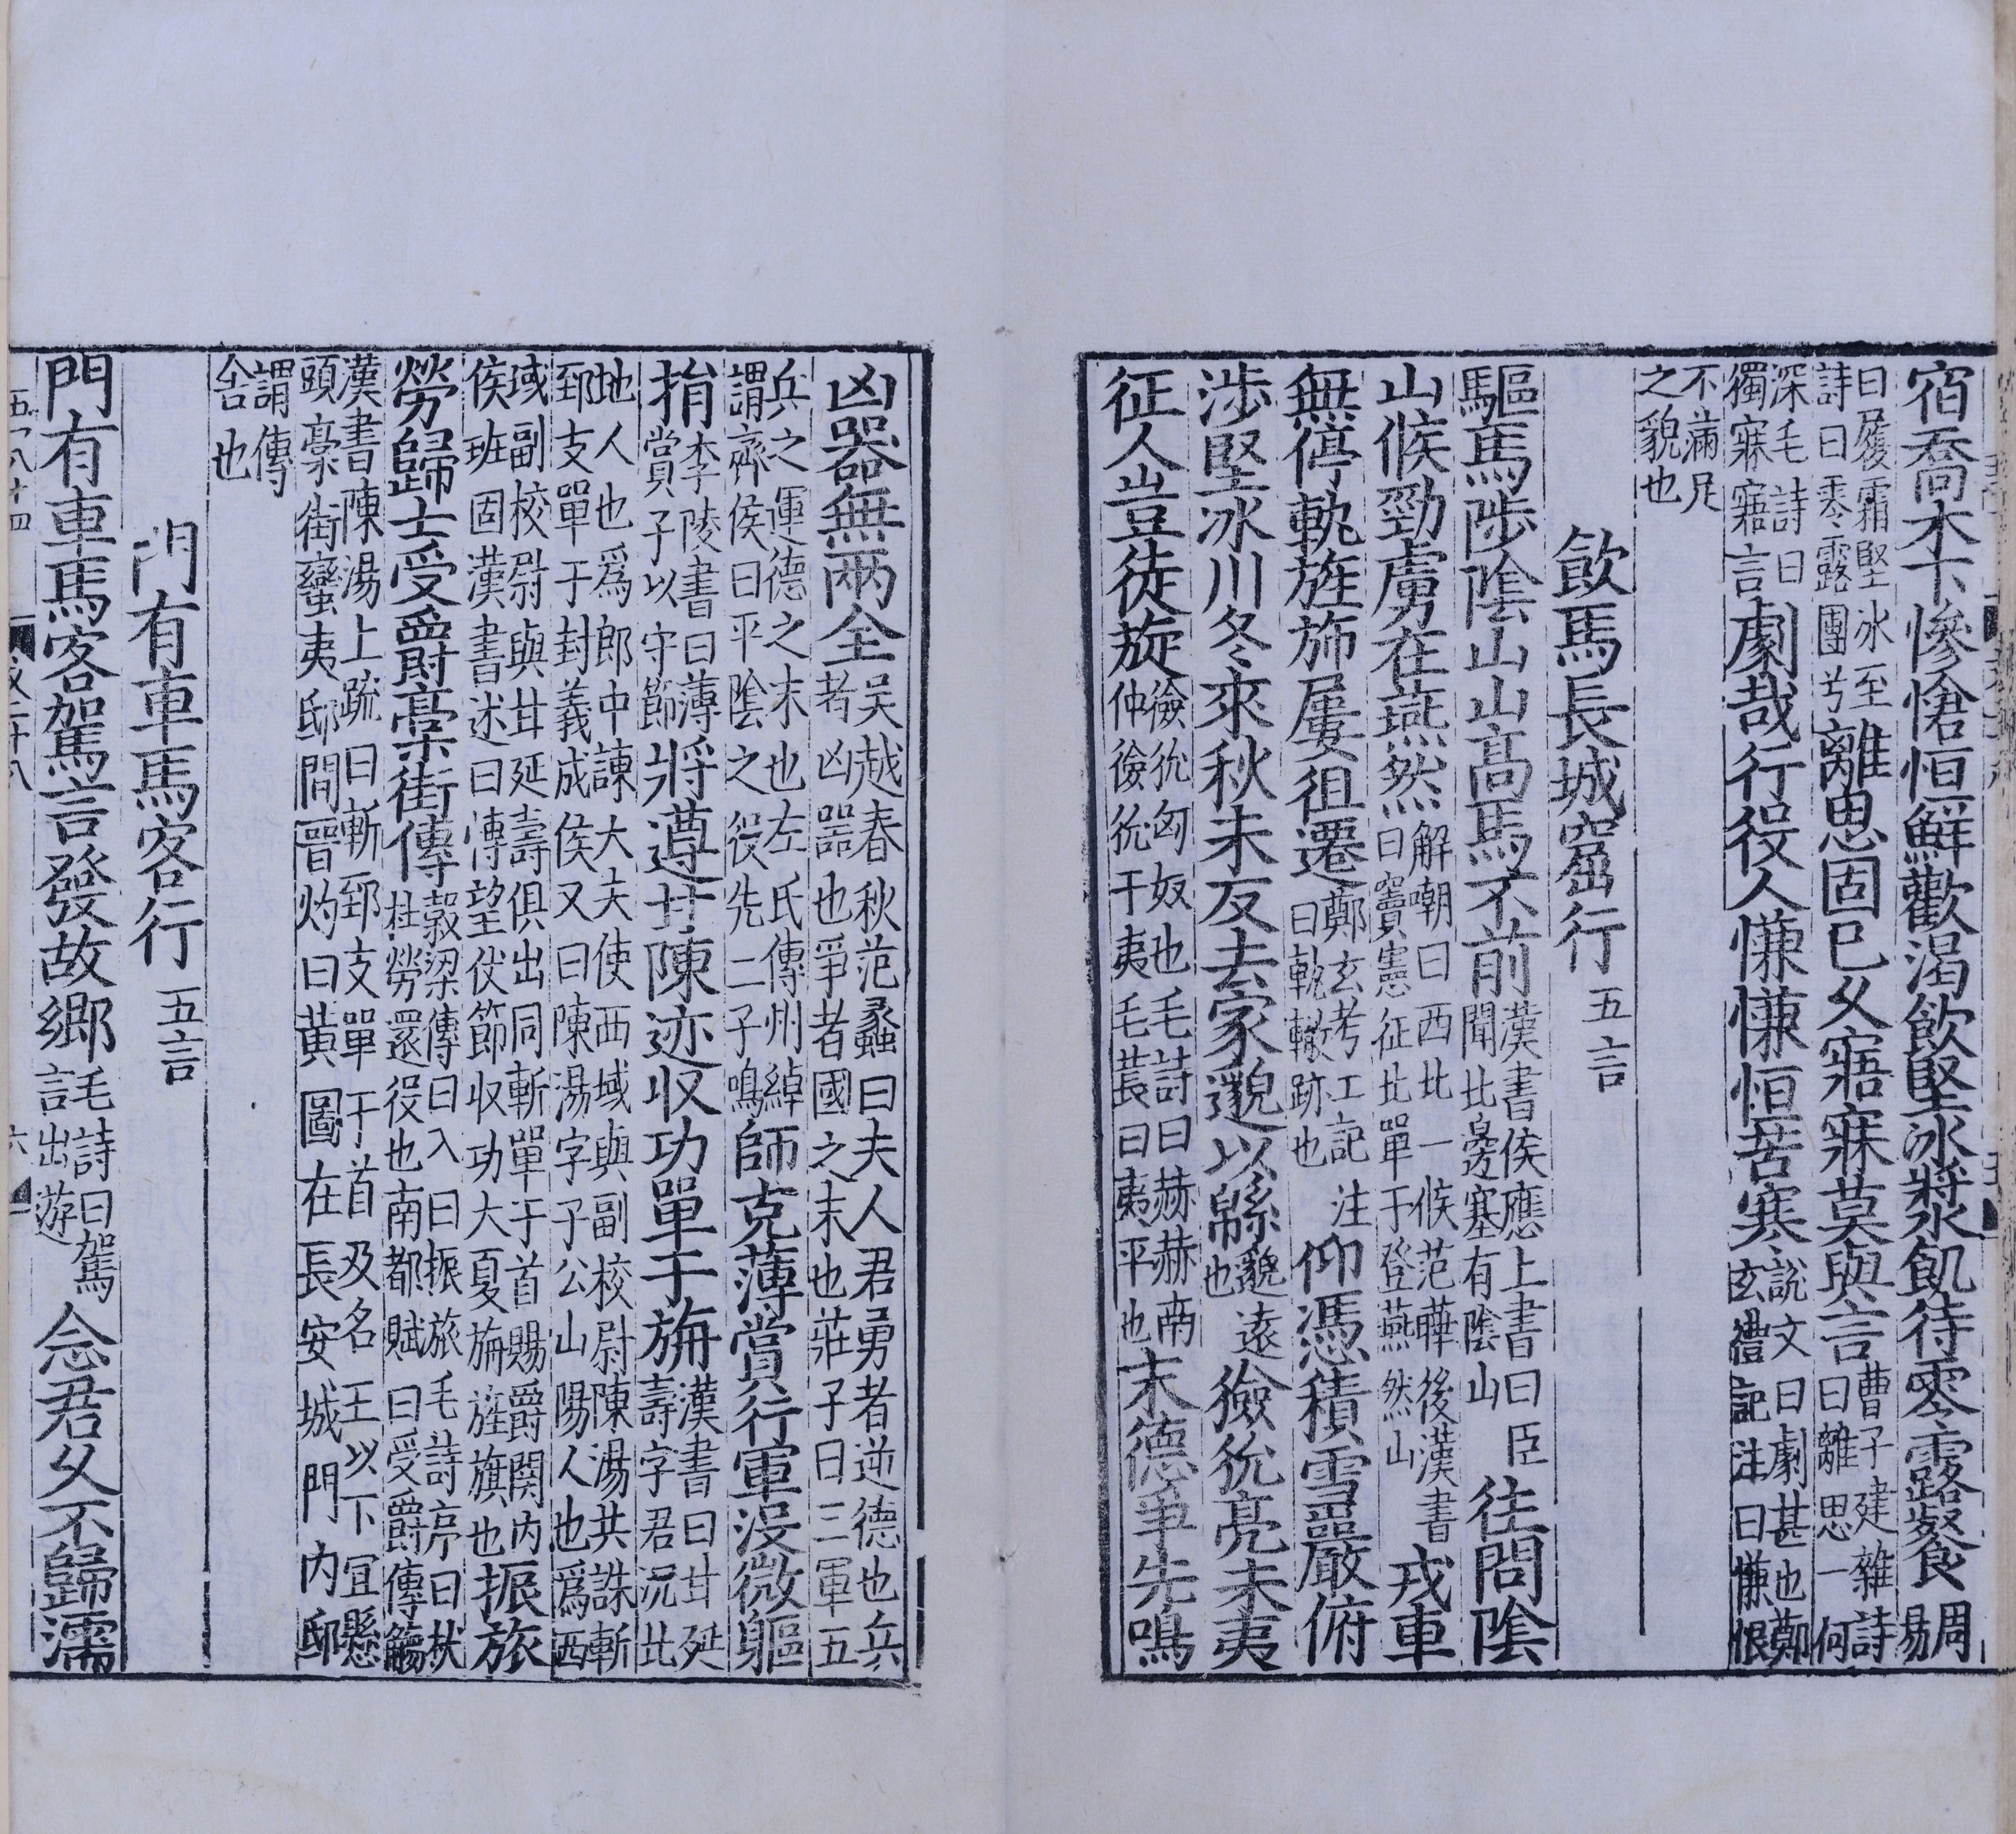 宿喬木下慘愴恒鮮歡渴飲堅冰漿飢待零露餐周易
曰履霜堅冰至詩曰零露團兮離思固已久寤寐莫與言曹子建雜詩曰離思一何
深毛詩曰獨寐寤言劇哉行役人慊慊恒苦寒說文曰劇甚也鄭玄禮記注曰慊恨
不滿足之貌也
飲馬長城窟行五言
驅馬陟陰山山高馬不前漢書侯應上書曰臣聞北邊塞有陰山往問陰
山候勁虜在燕然解嘲曰西北一候范曄後漢書曰竇憲征北單于登燕然山戎車
無停軌旌旆屢徂遷鄭玄考工記注曰軌轍跡也仰憑積雪巖俯
涉堅冰川冬來秋未反去家邈以緜邈遠也獫狁亮未夷
征人豈徒旋獫狁匈奴也毛詩曰赫赫南仲獫狁于夷毛萇曰夷平也末德爭先鳴
凶器無兩全吳越春秋范蠡曰夫人君勇者逆德也兵者凶器也爭者國之末也莊子曰三軍五
兵之運德之末也左氏傳州綽謂齊侯曰平陰之役先二子鳴師克薄賞行軍沒微軀
捐李陵書曰薄賞子以守節將遵甘陳迹收功單于旃漢書曰甘延壽字君況北
地人也為郎中諫大夫使西域與副校尉陳湯共誅斬郅支單于封義成侯又曰陳湯字子公山陽人也為西
域副校尉與甘延壽俱出同斬單于首賜爵關內侯班固漢書述曰博望仗節收功大夏旃旌旗也振旅
勞歸士受爵稾街傳穀梁傳曰入曰振旅毛詩序曰杕杜勞還役也南都賦曰受爵傳觴
漢書陳湯上疏曰斬郅支單于首及名王以下宜懸頭稾街蠻夷邸間晉灼曰黃圖在長安城門內邸
謂傳舍也
門有車馬客行五言
門有車馬客駕言發故鄉毛詩曰駕言出遊念君久不歸濡
文二十八 六